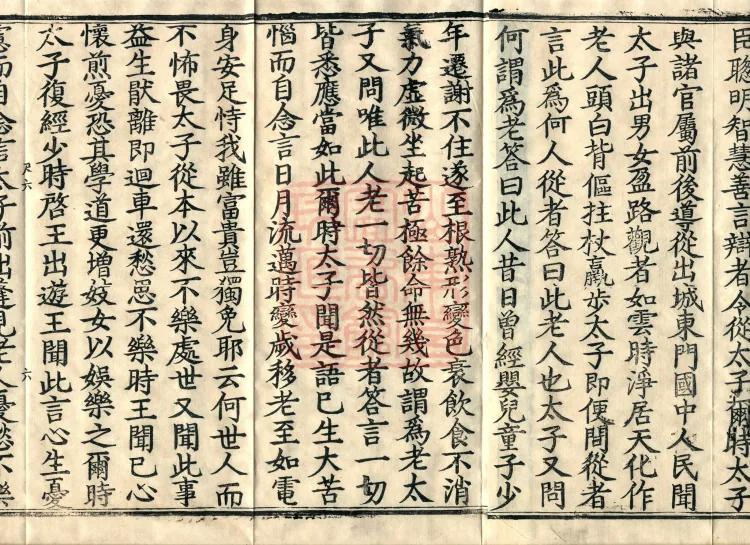 臣聰明智慧善言辯者令從太子爾時太子
與諸官屬前後導從出城東門國中人民聞
太子出男女盈路觀者如雲時淨居天化作
老人頭白背傴拄杖羸步太子即便問從者
言此為何人從者答曰此老人也太子又問
何謂為老答曰此人昔日曾經嬰兒童子少
年遷謝不住遂至根熟形變色衰飲食不消
氣力虛微坐起苦極餘命無幾故謂為老太
子又問唯此人老一切皆然從者答言一切
皆悉應當如此爾時太子聞是語已生大苦
惱而自念言日月流邁時變歲移老至如電
身安足恃我雖富貴豈獨免耶云何世人而
不怖畏太子從本以來不樂處世又聞此事
益生猒離即迴車還愁思不樂時王聞已心
懷煎憂恐其學道更增妓女以娛樂之爾時
六
太子復經少時啓王出遊王聞此言心生憂
慮而自念言太子前出逢見老人憂愁不樂